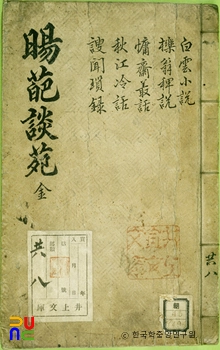 白雲小說
櫟翁稗說
慵齋叢話
秋江冷話
謏聞瑣錄
暘葩談苑 金
共八
年
月
井上文庫
共八
ⓒ 한국학중앙연구원